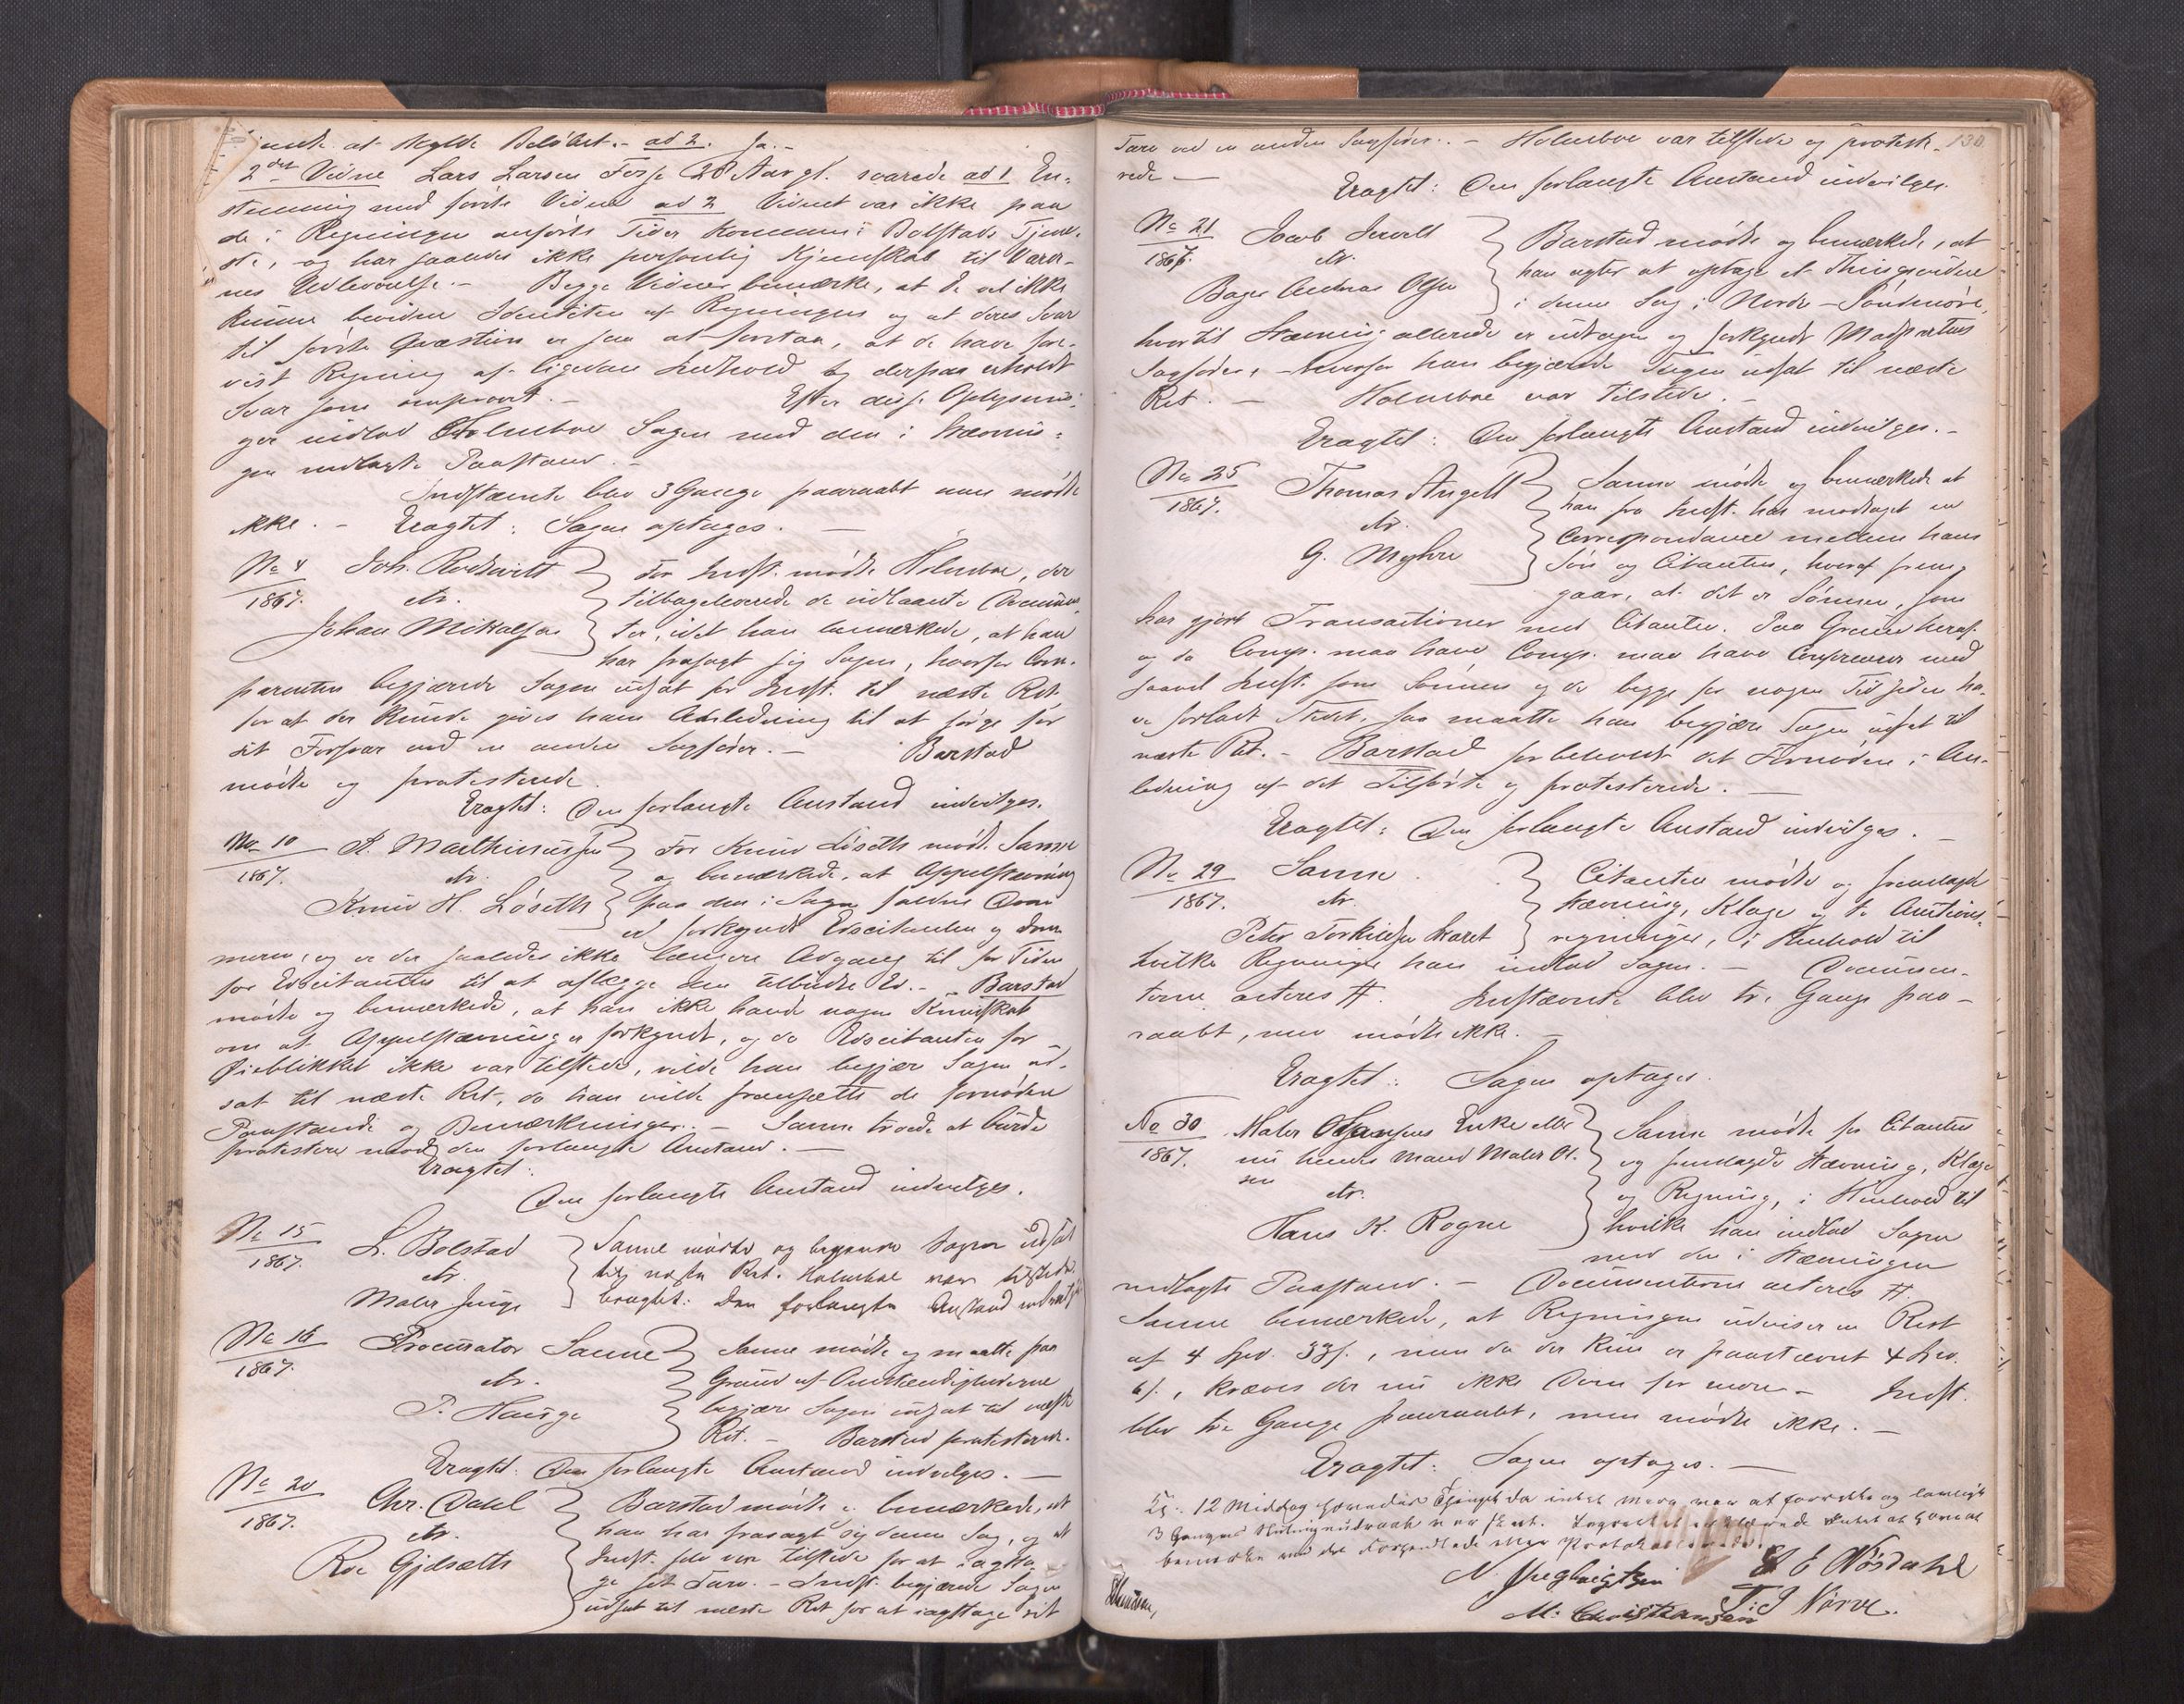 at skylde Beløbet. - ad 2. Ja. -
2det Vidne Lars Larsen Forse 28 Aar gl. svarede ad 1 En-
stemmig med første Vidne ad 2 Vidnet var ikke paa
de i Regningen anførte Tider kommen i Bolstads Tjene-
ste, og har saaledes ikke personlig Kjendskab til Varer-
nes Udlevering. - Begge Vidner bemærke, at de vel ikke
kunne bevidne Identiteten af Regningen og at deres Svar
til første Qvæstion er saa at forstaa, at de have fore-
vist Regning af ligedan Indhold og derpaa erholdt
Svar som omprovet. - Efter disse Oplysnin-
ger indlod Holmboe Sagen med den i Stævnin-
gen nedlagte Paastand. -
Indstævnte blev 3 Gange paaraabt men mødte
ikke. - Eragtet: Sagen optages. -
No 4
1867.
Joh. Rodtwitt
ctr.
Johan Mikalsen
For Indst. mødte Holmboe, der
tilbageleverede de udlaante Documen-
ter, idet han bemærkede, at han
har frasagt sig Sagen, hvorfor Com-
parenten begjærede Sagen udsat for Indst. til næste Ret
for at der kunde gives ham Anledning til at sørge for
sit Forsvar ved en anden Sagfører. - Barstad
mødte og protesterede.
Eragtet: Den forlangte Anstand indvilges.
No 10
1867.
P. Mathiesen
ctr.
Knud H. Løseth
For Knud Løseth mødte Sanne
og bemærkede, at Appelstævning
paa den i Sagen faldne Dom
er forkyndt Edscitanten og Dom-
meren, og er der saaledes ikke længere Adgang til for Tiden
for Edscitanten til at aflægge den tilbudte Ed. - Barstad
mødte og bemærkede, at han ikke havde nogen Kundskab
om at Appelstævning er forkyndt, og da Edscitanten for
Øieblikket ikke var tilstede, vilde han begjære Sagen ud-
sat til næste Ret, da han vilde fremsætte de fornødne
Paastande og Bemærkninger. - Sanne troede at burde
protestere mod den forlangte Anstand. -
Eragtet:
Den forlangte Anstand indvilges.
No 15
1867.
L. Bolstad
ctr.
Maler Junge
Sanne mødte og begjærede Sagen udsat
til næste Ret. Holmboe var tilstede.
Eragtet: Den forlangte Anstand indvilges
No 16
1867.
Procurator Sanne
ctr.
P. Hauge
Sanne mødte og maatte paa
Grund af Omstændighederne
begjære Sagen udsat til næste
Ret. - Barstad protesterede.
Eragtet: Den forlangte Anstand indvilges. -
No 20
1867.
Chr. Dahl
ctr.
Roe Gjelseth
Barstad mødte og bemærkede, at
han har frasagt sig denne Sag, og at
Indst. selv var tilstede for at iagtta-
ge sit Tarv. - Indst. begjærede Sagen
udsat til næste Ret for at iagttage sit
Tarv ved en anden Sagfører. - Holmboe var tilstede og protest- 130
rede -
Eragtet: Den forlangte Anstand indvilges.
No 21
1867.
Jacob
ctr.
Bager Andreas Olsen
Barstad mødte og bemærkede, at
han agter at optage et Thingsvidne
i denne Sag i Nordre-Søndmøre,
hvortil Stævning allerede er udtagen og forkyndt Modpartens
Sagfører, - hvorfor han begjærede Sagen udsat til næste
Ret. - Holmboe var tilstede. -
Eragtet: Den forlangte Anstand indvilges. -
No 25
1867.
Thomas Angell
ctr.
G. Myhre
Sanne mødte og bemærkede at
han fra Indst. har modtaget en
Correspondance mellem hans
Søn og Citanten, hvoraf frem-
gaar, at det er Sønnen, som
har gjort Transactioner med Citanten. Paa Grund heraf
og da Comp. maa have Comp. maa have Conference med
saavel Indst. som Sønnen og da begge for nogen Tid siden ha-
ve forladt Stedet, saa maatte han begjære Sagen udsat til
næste Ret. - Barstad forbeholdt det Fornødne i An-
ledning af det Tilførte og protesterede. -
Eragtet: Den forlangte Anstand indvilges. -
No 29
1867.
Sanne
ctr.
Peter Torkildsen
Citanten mødte og fremlagde
Stævning, Klage og to Auctions-
regninger, i Henhold til
hvilke Regninger han indlod Sagen. - Documen-
terne acteres #. Indstævnte blev tre Gange paa-
raabt, men mødte ikke. -
Eragtet: Sagen optages.
No 30
1867.
Maler Enke eller
nu hendes Mand Maler Ol-
sen
ctr.
Hans K. Rogne
Sanne mødte for Citanten
og fremlagde Stævning, Klage
og Regning, i Henhold til
hvilke han indlod Sagen
med den i Stævningen
nedlagte Paastand. - Documenterne acteres #.
Sanne bemærkede, at Regningen udviser en Rest
af 4 Spd. 33 s., men da der kun er paastævnt 4 Spd.
6 s., kræves der nu ikke Dom for mere. - Indst.
blev tre Gange paaraabt, men mødte ikke. -
Eragtet: Sagen optages. -
12 Middag hævedes Thinget da intet mere var at forrette og lovligt
3 Ganges Slutningsudraab var skeet. Lagrettet erklærede Intet at have at
bemærke ved det Forhandlede eller Protokollerede.
E Nørdahl
M. Christiansen
Nørve.